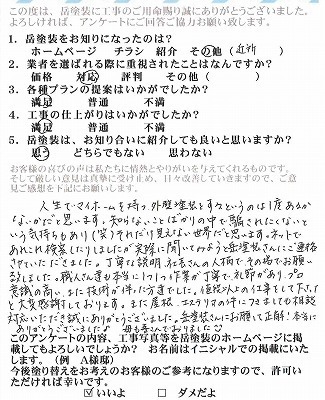 この度は、岳塗装に工事のご用命賜り誠にありがとうございました。
よろしければ、アンケートにご回答ご協力お願い致します。
1. 岳塗装をお知りになったのは?
ホームページ チラシ 紹介 その他 ( 近所 )
2. 業者を選ばれる際に重視されたことはなんですか?
価格 対応 評判 その他 ( )
3. 各種プランの提案はいかがでしたか?
満足 普通 不満
4. 工事の仕上がりはいかがでしたか?
満足 普通 不満
5. 岳塗装は、お知り合いに紹介しても良いと思いますか?
思う どちらでもない 思わない
お客様の喜びの声は私たちに情熱とやりがいを与えてくれるものです。
そして厳しい意見は真摯に受け止め、日々改善していきますので、ご意
見ご感想を下記にお願いします。
人生でマイホームを持つ、外壁塗装をするというのは1度あるか
ないかだと思います。知らないことばかりの中で騙されたくないと
いう気持ちもあり(笑)それだけ見えない世界だと思います。ネットで
あれこれ検索したりしましたが実際に聞いてみようと岳塗装さんにご連絡
させていただきました。丁寧な説明、社長さんの人柄でその場でお願い
致しました。職人さん達も本当に1つ1つ作業が丁寧で、礼節があり、プロ
意識の高い、また技術が伴った方達でした。値段以上の仕事をして下さり
と大変感謝しております。また屋根、エコキュートの件につきましても相談
対応いただき誠にありがとうございました。岳塗装さんにお願いして正解!本当に
ありがとうございました♪ 母も喜んでおりました
このアンケートの内容、工事写真等を岳塗装のホームページに掲
載してもよろしいでしょうか? お名前はイニシャルでの掲載にいた
します。(例 A様邸)
今後塗り替えをお考えのお客様のご参考になりますので、許可い
ただければ幸いです。
☑いいよ □ダメだよ